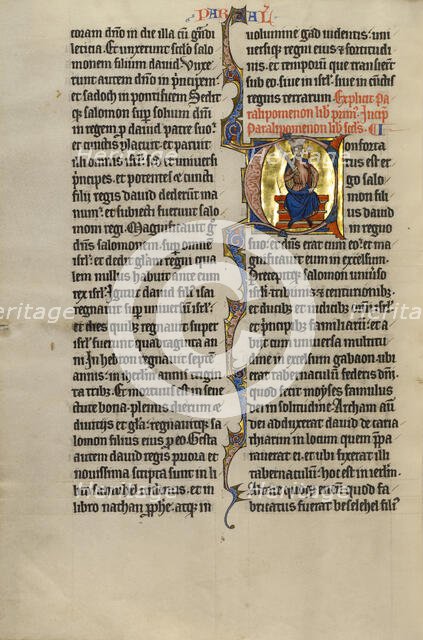 PAR AL
coram dño in die illa cū grādi
leticia. Et unxerunt scđo salo
monem filium dauid. Vnxe
runt autem dño in prīncipem.
et sadoch in pontificem. Sedit
qȝ salomon sup solium dñi
in regem p dauid patre suo.
et cūctis placuit. et paruit
illi omnis isrl. sȝ et uniuersi
prīncipes. et potentes. et cuncti
filii regis dauid dederunt ma
num. et subiecti fuerunt salo
moni regi. Magnificauit g̃
dñs salomonem. sup omnē
isrl. et dedit illi gl'am regni qua
lem nullus habuit ante eum
rex isrl. Igitur dauid fili' isai
regnauit sup uniuersū isrl.
et dies quibȝ regnauit super
isrl' fuerunt quadraginta an
ni. In hebron regnauit septē
annis. in ihrlm annis trigin
ta tribȝ. Et mortuus est in sene
ctute bona. plenus dierum. et
diuitiis et gl'a. regnauitqȝ sa
lomon filius eius p eo. Gesta
autem dauid regis priora et
nouissima scripta sunt in li
bro samuhel uidentis. et in
libro nathan p̱phe. atqȝ in
uolumine gad uidentis. uni
uersiqȝ regni eius. et fortitudi
nis. et temporū que transierūt
sub eo. siue in isrl'. siue in cūctis
regnis terrarum. Explicit Pa
ralipomenon lib prim'. Incip̄
Paralipomenon lib scđs. C I
Onforta
tus est er
go salo
mon fili
filius dauid
in regno
suo. et dñs erat cum eo. et ma
gnificauit eum in excelsum.
Precepitqȝ salomon uniūso
isrl'. tribunis. et centurionibȝ.
et ducibȝ. et iudicibȝ omīs isrl'.
et prīncipibȝ familiarū. et a
biit cum uniuersa multitu
dine in excelsum gabaon. ubi
erat tabernaculū federis dñi.
quod fecit moyses famulus
dei in solitudine. Archam aut
dei adduxerat dauid de caria
thiarim in locum quem p̄pa
rauerat ei. et ubi fixerat illi
tabernaculū. hoc est in ierlm.
Altare quoqȝ eneū quod fa
bricatus fuerat beselehel fili'
Heritage
Images